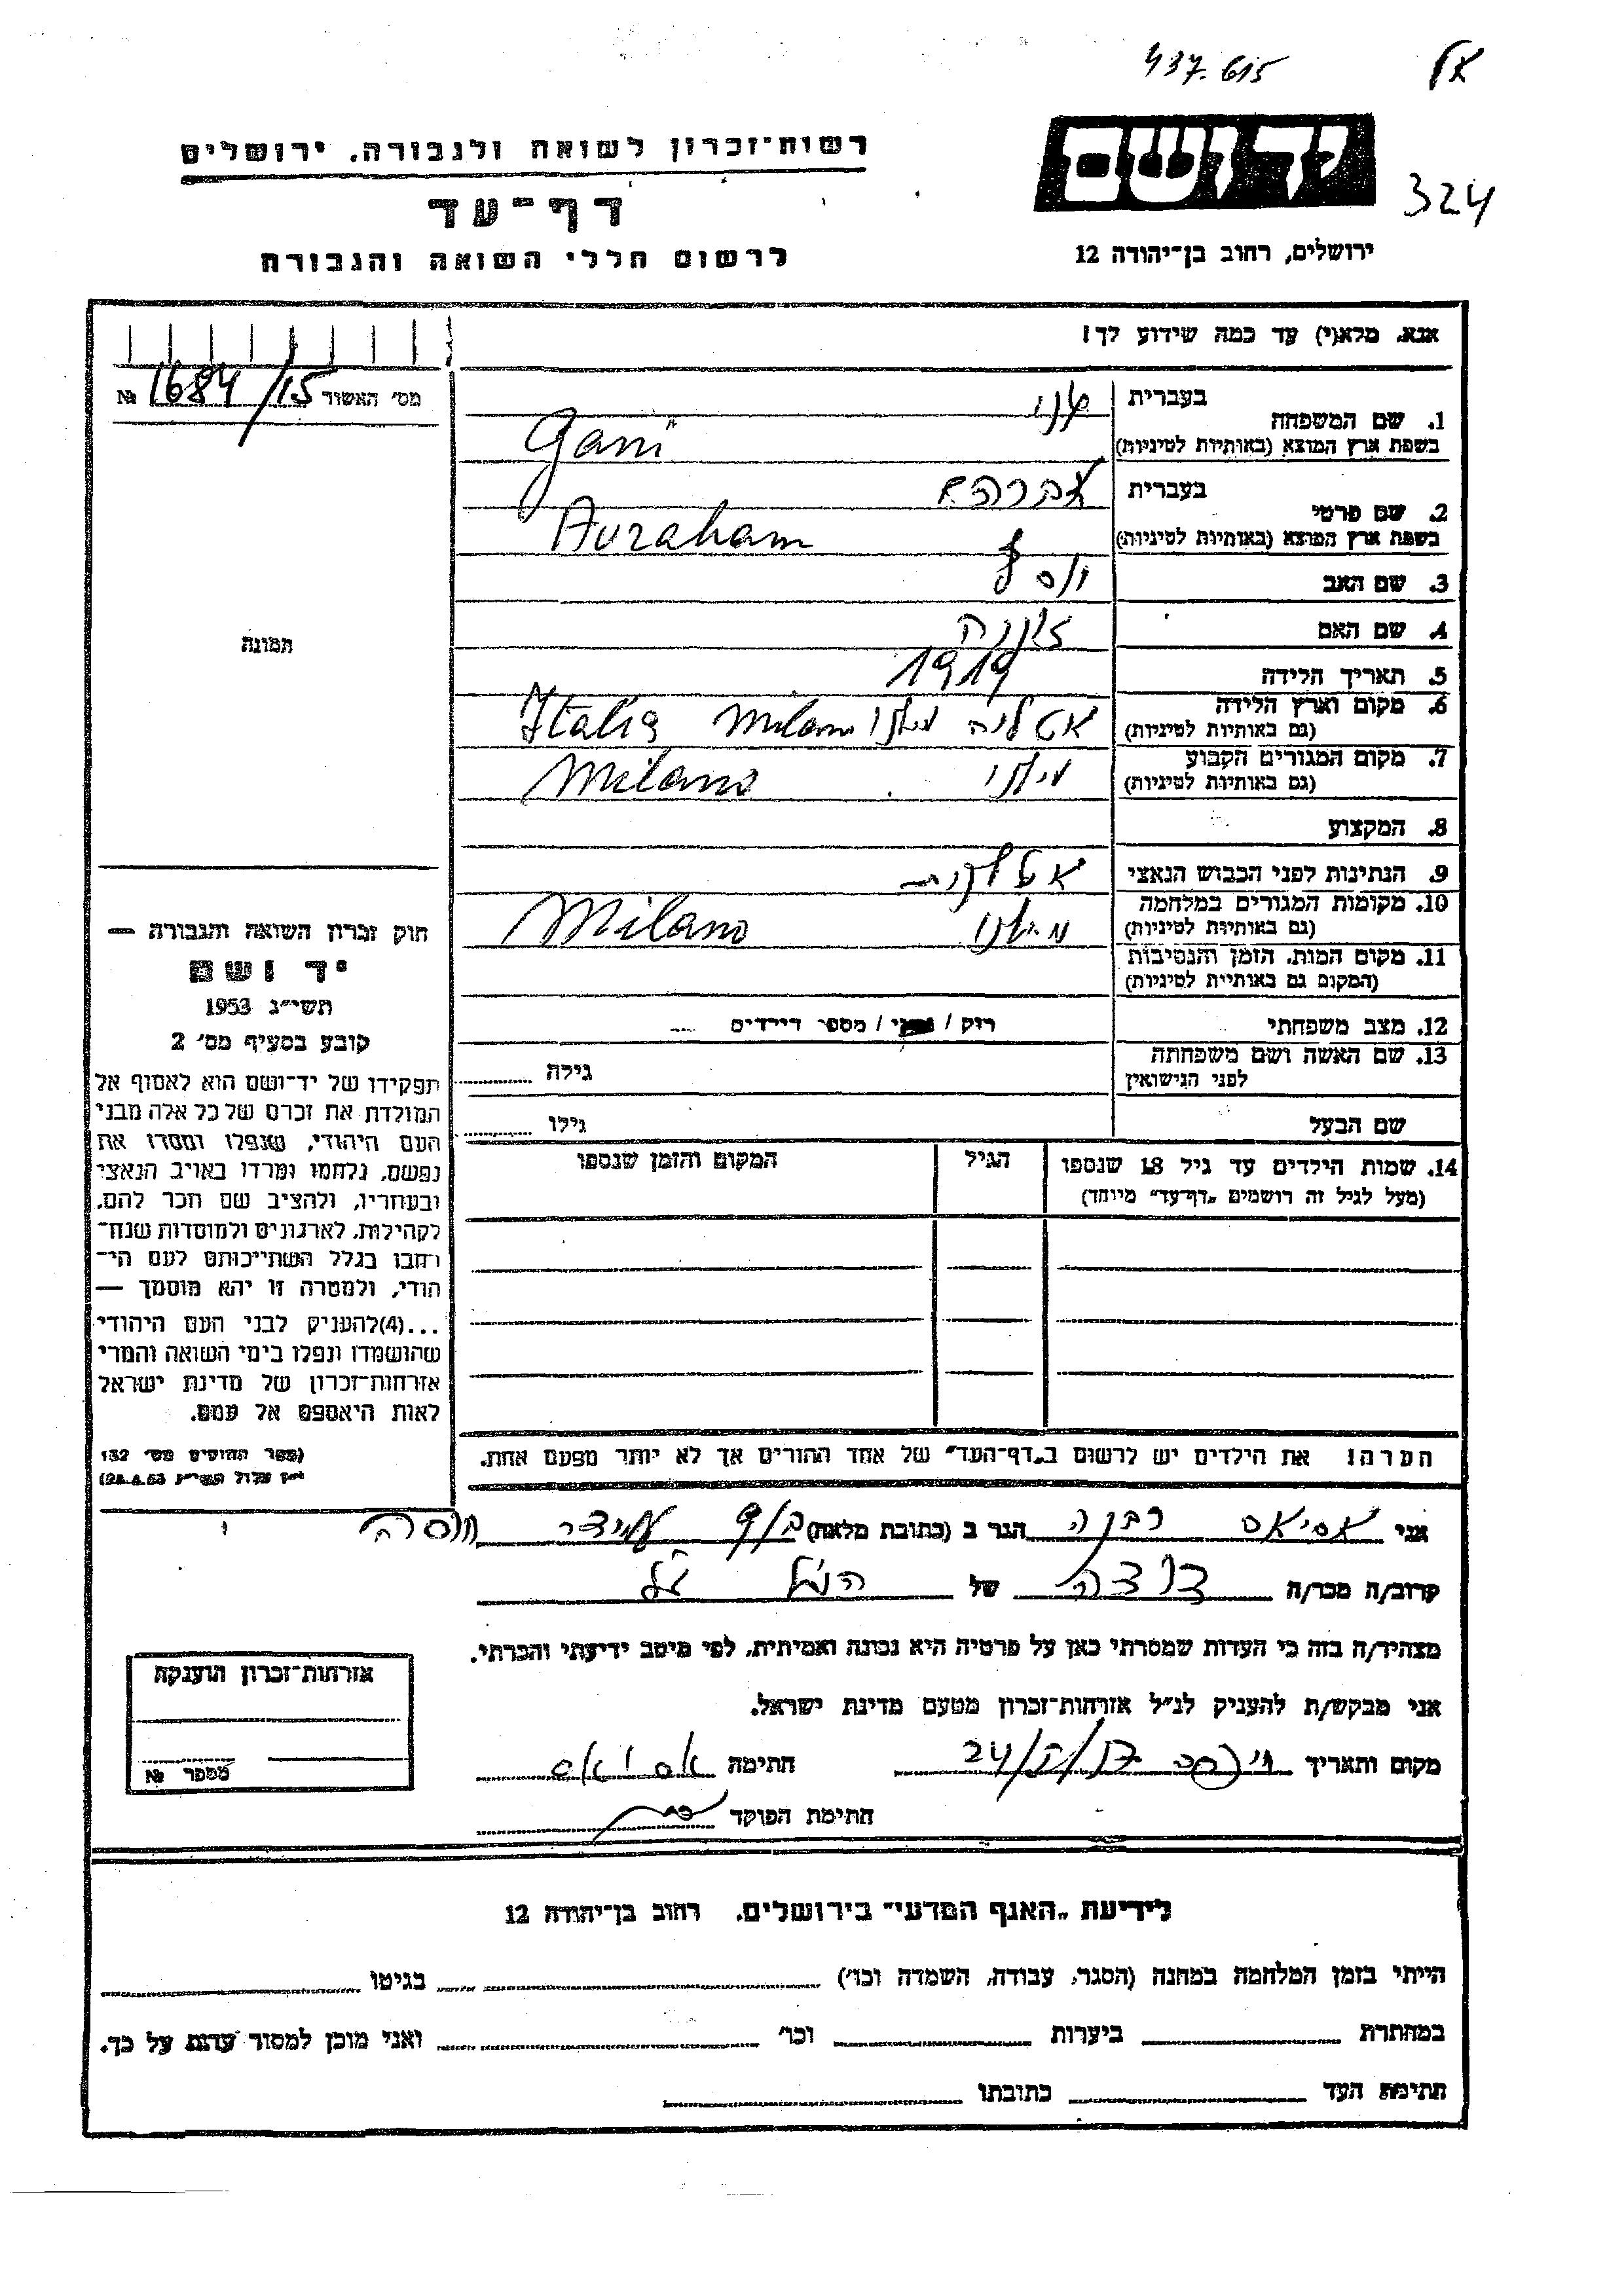 437.615
324
רשות־זכרון לשואה ולגבורה. ירושלים
דף־עד
לרשום חללי השואה והגבורה
יד ושם
ירושלים, רחוב בן־יהודה 12
אנא, מלא(י) עד כמה שידוע לך!
מס׳ האשור 1684/15 №
1. שם המשפחה
בעברית
בשפת ארץ המוצא (באותיות לטיניות) Gani
2. שם פרטי
בעברית אברהם
בשפת ארץ המוצא (באותיות לטיניות) Avraham
3. שם האב יוסף
4. שם האם
5. תאריך הלידה 1919
6. מקום וארץ הלידה איטליה מילנו Milano Italia
(גם באותיות לטיניות)
7. מקום המגורים הקבוע מילנו Milano
(גם באותיות לטיניות)
8. המקצוע
9. הנתינות לפני הכבוש הנאצי
10. מקומות המגורים במלחמה מילנו Milano
(גם באותיות לטיניות)
11. מקום המות. הזמן והנסיבות
(המקום גם באותיות לטיניות)
12. מצב משפחתי רוק / נשוי / מספר הילדים
13. שם האשה ושם משפחתה
לפני הנישואין גילה
שם הבעל גילו
14. שמות הילדים עד גיל 18 שנספו
(מעל לגיל זה רושמים „דף־עד״ מיוחד)
הגיל
המקום והזמן שנספו
הערה! את הילדים יש לרשום ב„דף־העד״ של אחד ההורים אך לא יותר מפעם אחת.
תמונה
חוק זכרון השואה והגבורה —
יד ושם
תשי״ג 1953
קובע בסעיף מס׳ 2
תפקידו של יד־ושם הוא לאסוף אל
המולדת את זכרם של כל אלה מבני
העם היהודי, שנפלו ומסרו את
נפשם, נלחמו ומרדו באויב הנאצי
ובעוזריו, ולהציב שם וזכר להם,
לקהילות, לארגונים ולמוסדות שנח־
רבו בגלל השתייכותם לעם הי־
הודי, ולמטרה זו יהא מוסמך —
...(4)להעניק לבני העם היהודי
שהושמדו ונפלו בימי השואה והמרי
אזרחות־זכרון של מדינת ישראל
לאות היאספם אל עמם.
(ספר החוקים מס׳ 132
אני הגר ב (כתובת מלאה)
קרוב/ה מכר/ה דודה של הנ״ל
מצהיר/ה בזה כי העדות שמסרתי כאן על פרטיה היא נכונה ואמיתית, לפי מיטב ידיעתי והכרתי.
אני מבקש/ת להעניק לנ״ל אזרחות־זכרון מטעם מדינת ישראל.
מקום ותאריך חתימה
חתימת הפוקד
אזרחות־זכרון הוענקה
מספר №
לידיעת „האגף המדעי״ בירושלים. רחוב בן־יהודה 12
הייתי בזמן המלחמה במחנה (הסגר, עבודה, השמדה וכו׳) בגיטו
במחתרת ביערות וכו׳ ואני מוכן למסור עדות על כך.
חתימת העד כתובתו